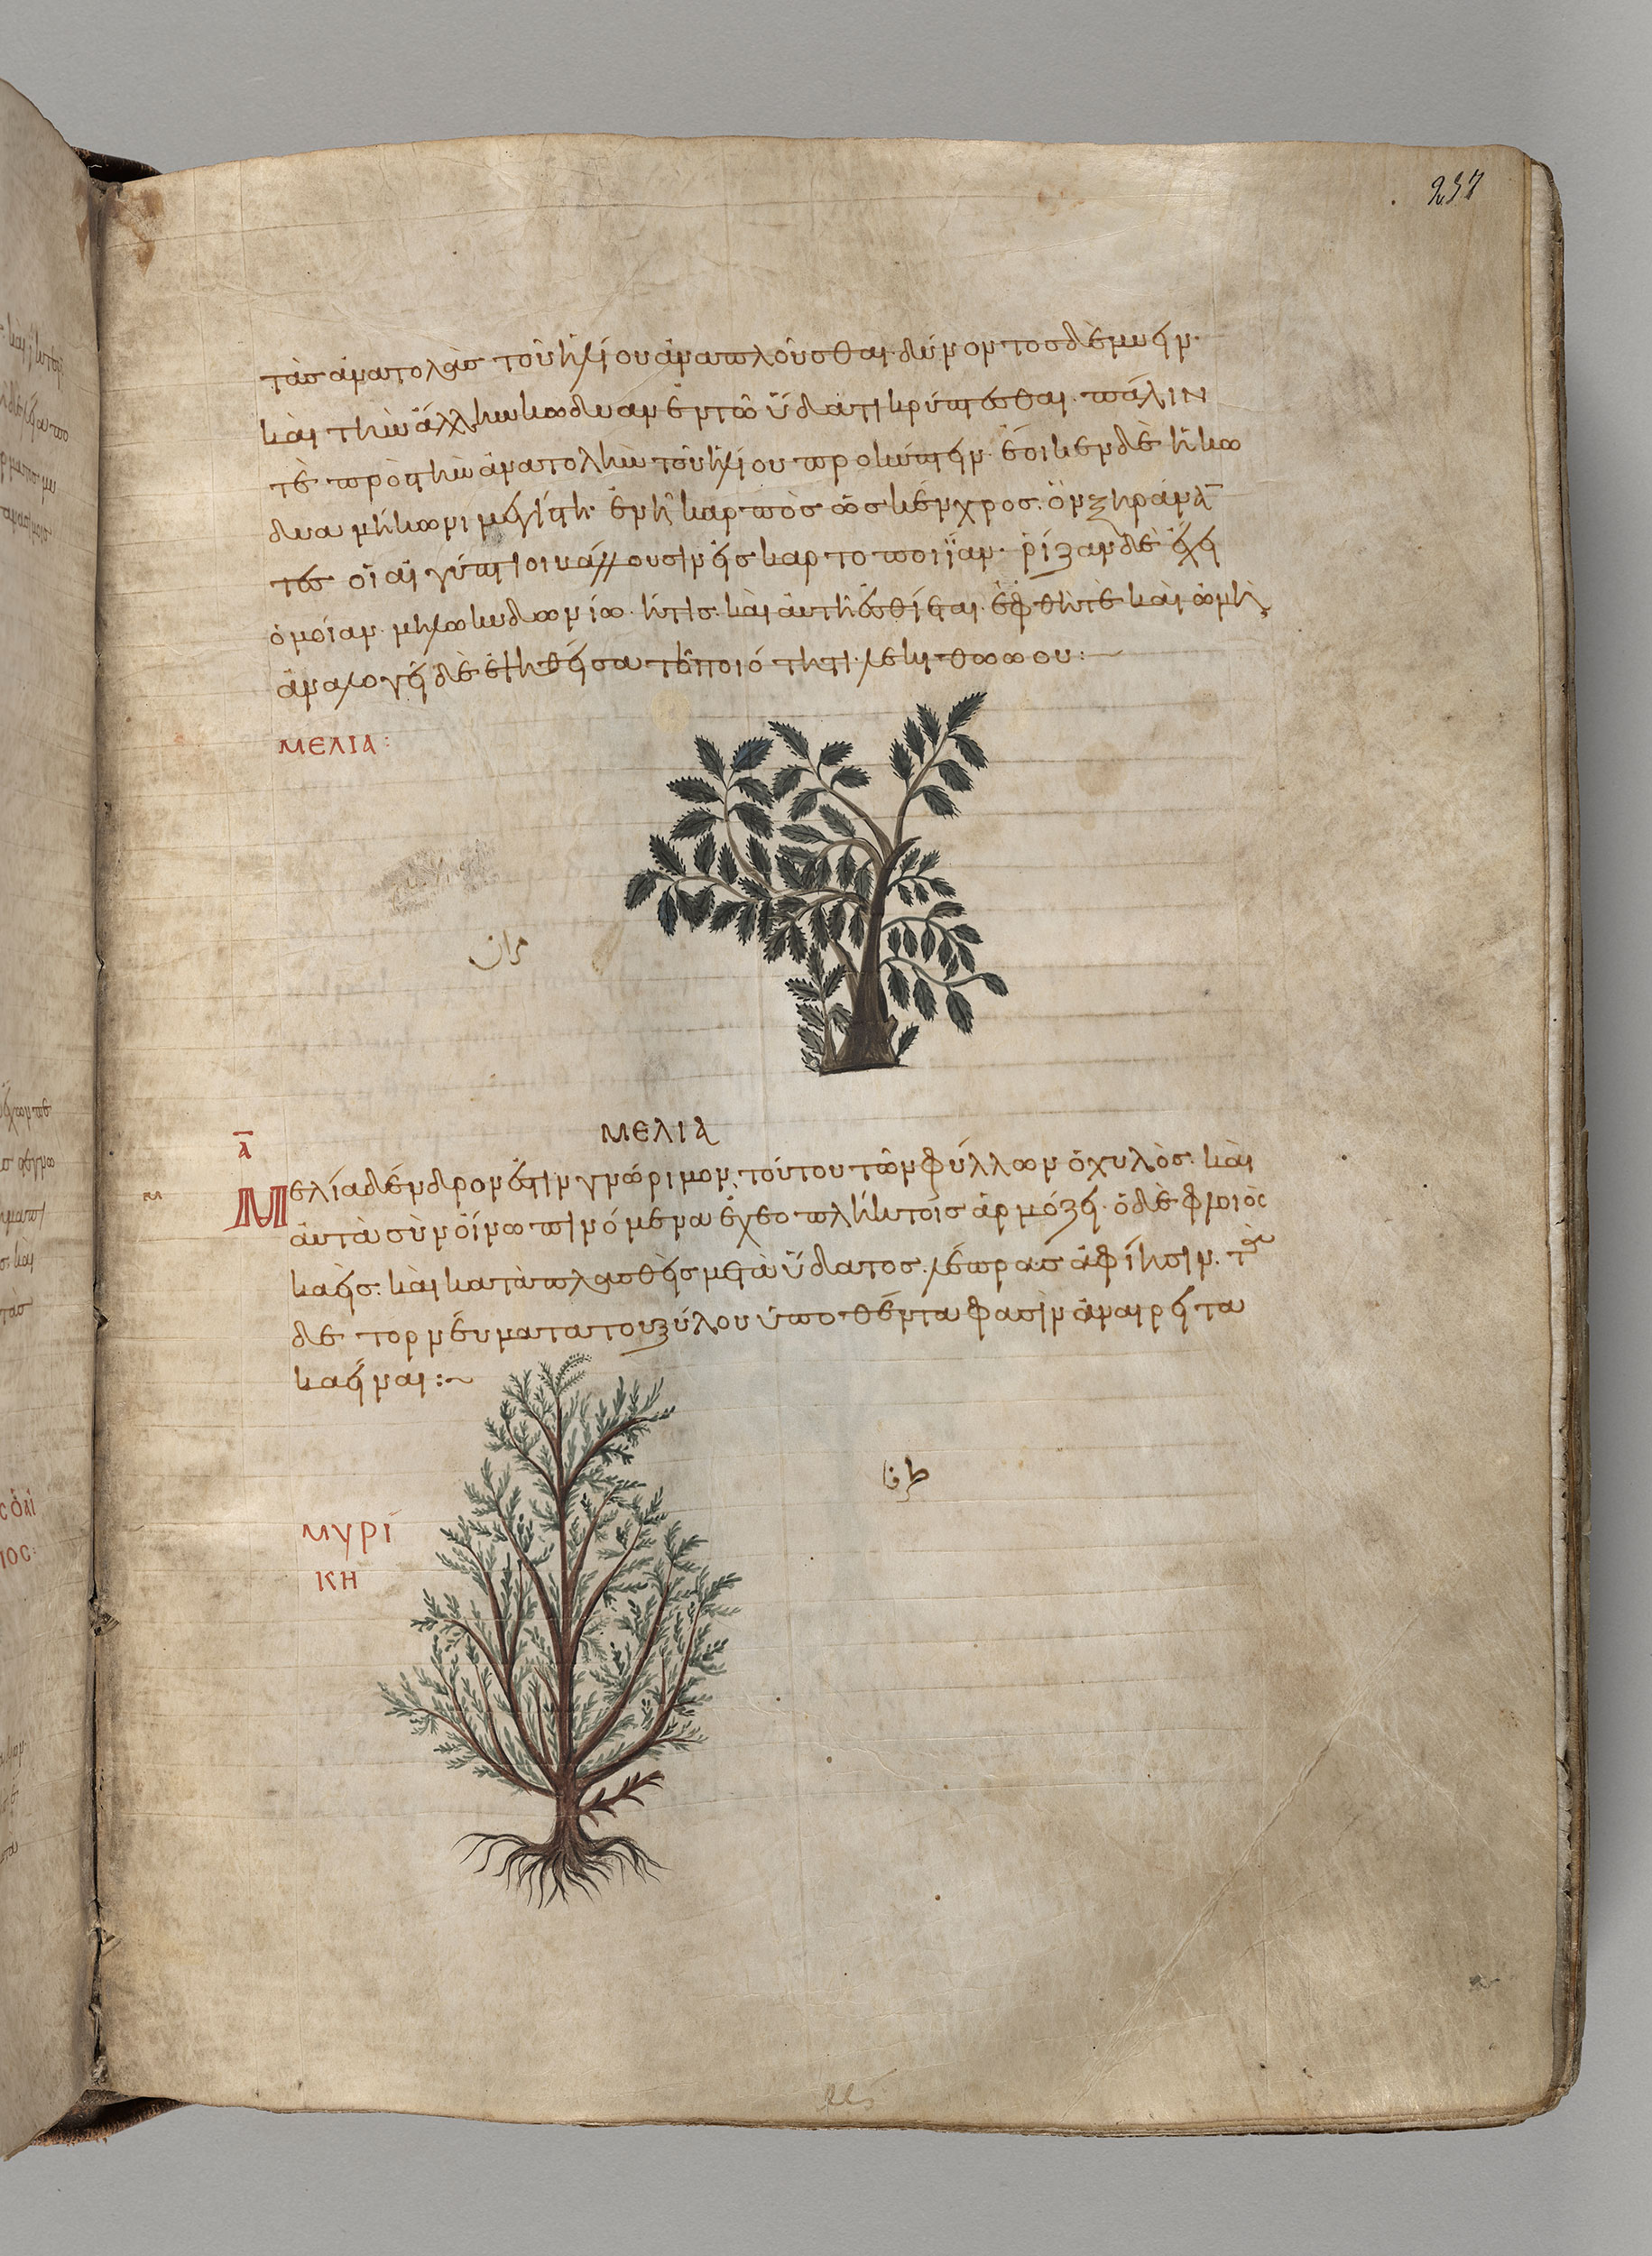 237
τὰσ ἀνατολὰσ τοῦ ἡλίου ἀναπλοῦσθαι· δύνοντοσ δὲ μύειν·
καὶ τὴν ἄλλην κωδυαν ἐν τῶ ὕδατι κρύπτεσθαι· πάλιν
τὲ πρὸσ τὴν ἀνατολὴν τοῦ ἡλίου προκύπτειν· ἔοικεν δὲ ἡ κω
δυα μήκωνι μεγίστη· ἐν ἧ καρπὸσ ὡσ κέγχροσ· ὃν ξηράναν
τεσ οἱ αἰγύπτιοι κάλλουσιν εἰσ καρτοποιΐαν· ῥίζαν δὲ ἔχει
ὁμοίαν· μήλω κυδωνίω· ἥτισ καὶ ἀυτὴ ἐσθίεται· ἑφθήτε καὶ ὠμὴ·
ἀναλογεῖ δὲ ἑψηθεῖσα τῆ ποιότητι· λεκιθω ωου:
ΜΕΛΙΑ:
مران
ΜΕΛΙΑ
Α
Μελία δένδρον ἐστὶν γνώριμον· τούτου τῶν φύλλων ὁ χυλὸσ· καὶ
ἀυτὰ σὺν ὄίνω πινόμενα ἐχεοπλήκτοισ ἁρμόζει· ὁ δὲ φλοιὸσ
καεὶσ· καὶ καταπλασθεὶσ μετὰ ὕδατοσ· λέπρασ ἀφίησιν· τὰ
δε τορνέυματα του ξύλου ὑποθέντα φασὶν ἀναιρεῖ τα
καεῖναι:~
طرفا
ΜΥΡΙ
ΚΗ